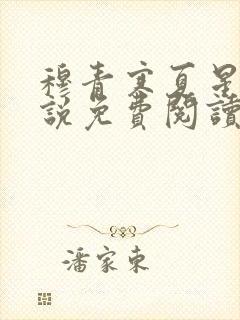 穆青寒夏星
說免費閱讀
潘家東